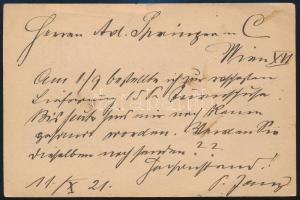 Herren Ad. Springer in C
Wien XVI
Am 1/9 bestellte ich zur raschesten
Lieferung 15 K.
Bis heute sind mir noch keine
gesandt worden. Werden Sie
dieselben noch senden??
Hochachtend!
11/X 21.